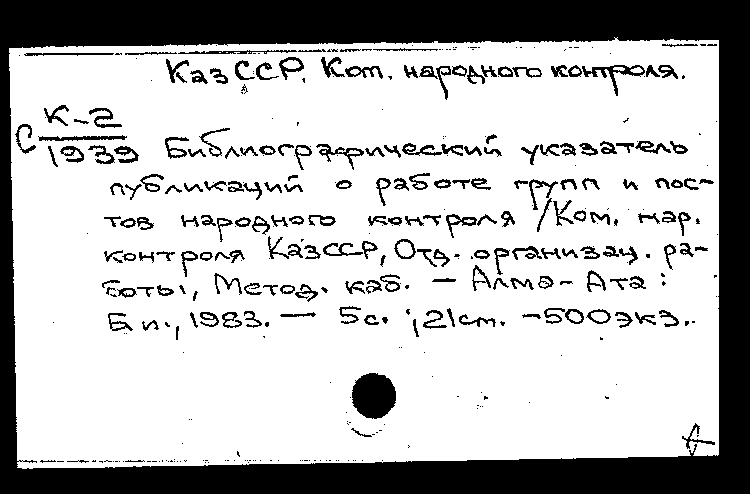 КазССР. Ком. народного контроля.
С К-2
1939 Библиографический указатель
публикаций о работе групп и пос-
тов народного контроля / Ком. нар.
контроля КазССР, Отд. организац. ра-
боты, Метод. каб. — Алма-Ата:
Б.и., 1983. — 5с.; 21см. - 500экз.